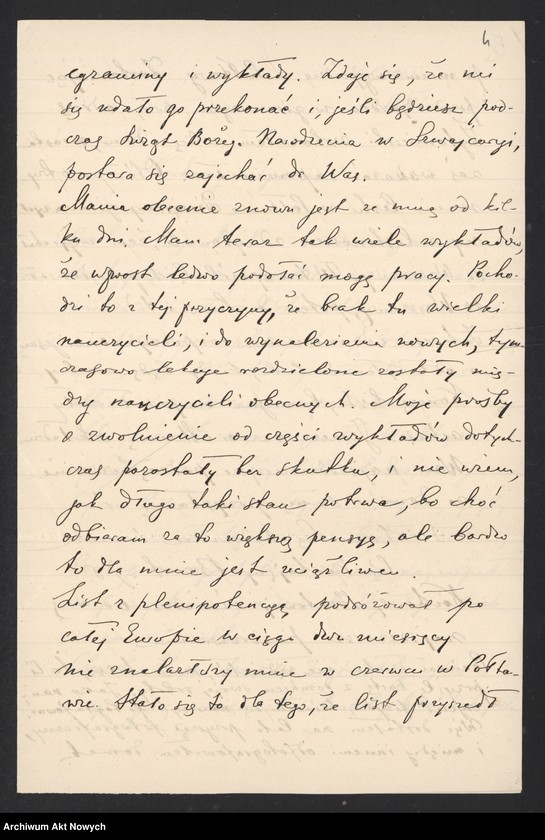 4
egzaminy i wykłady. Zdaje się, że mi
się udało go przekonać i, jeśli będziesz pod-
czas Świąt Bożeg. Narodzenia w Szwajcaryi,
postara się zajechać do Was.
Mania obecnie znowu jest ze mną od kil-
ku dni. Mam teraz tak wiele wykładów,
że wprost ledwo podołać mogę pracy. Pocho-
dzi to z tej przyczyny, że brak tu wielki
nauczycieli, i do wynalezienia nowych, tym-
czasowo lekcye rozdzielone zostały mię-
dzy nauczycieli obecnych. Moje prośby
o zwolnienie od części wykładów dotych-
czas pozostały bez skutku, i nie wiem,
jak długo taki stan potrwa, bo choć
odbieram za to większą pensyę, ale bardzo
to dla mnie jest uciążliwem.
List z plenipotencyą, podróżował po
całej Europie w ciągu dwu miesięcy
nie znalazłszy mnie w czerwcu w Połta-
wie. Stało się to dla tego, że list przyszedł
Archiwum Akt Nowych